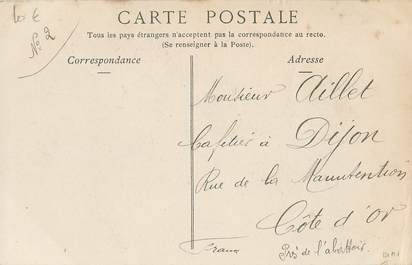 10 €
No 2
CARTE POSTALE
Tous les pays étrangers n'acceptent pas la correspondance au recto.
(Se renseigner à la Poste).
Correspondance
Adresse
Monsieur Aillet
Cafetier à Dijon
Rue de la Manutention
Côte d'or
France
Près de l'abattoir